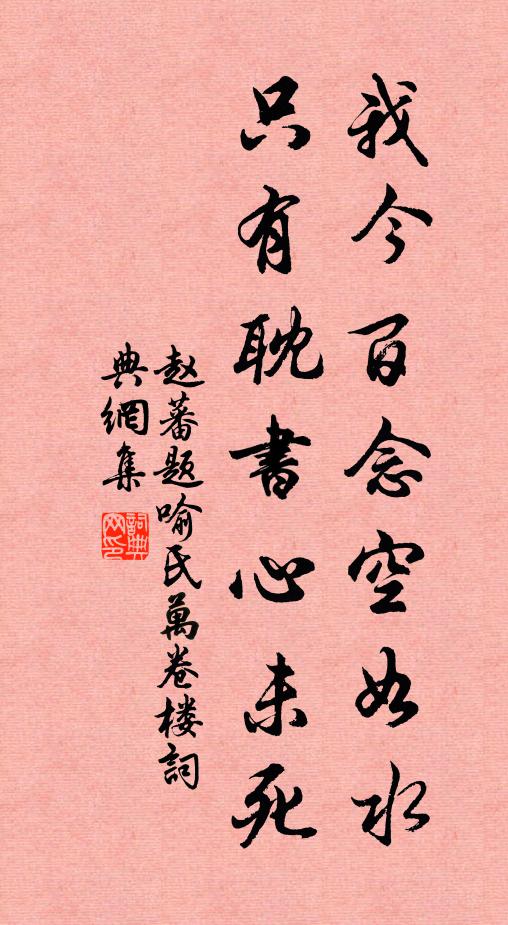 我今百念空如水
只有耽书心未死
赵蕃题喻氏萬卷楼詞
典網集
詞典網印